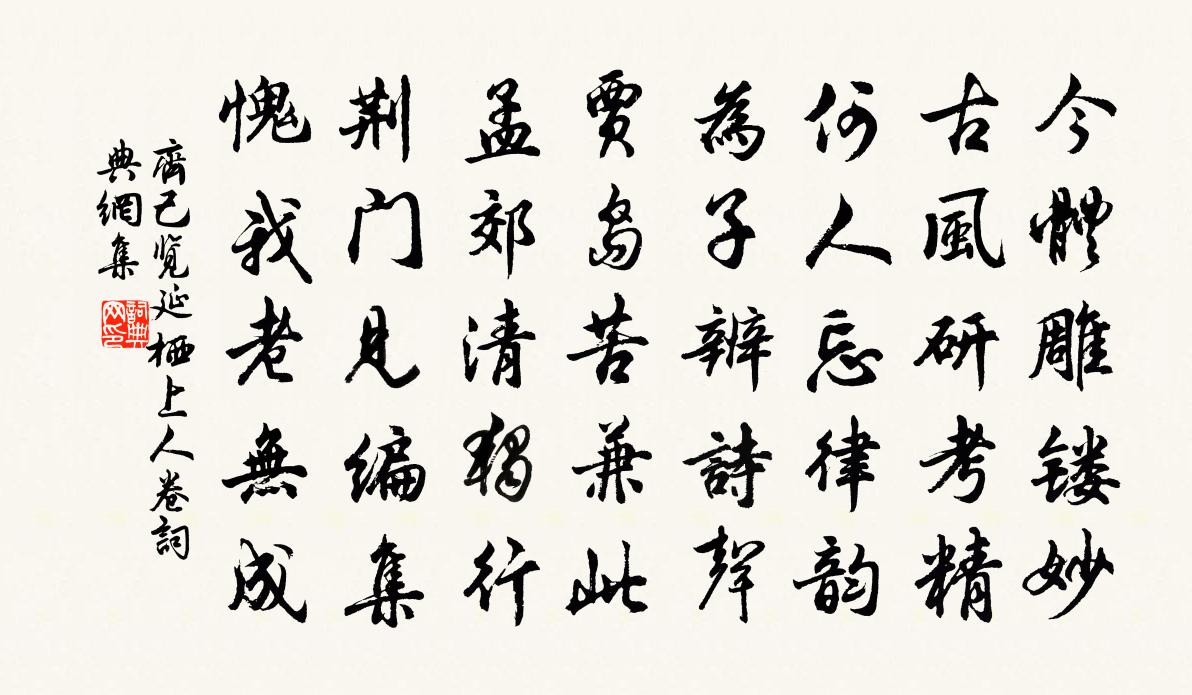 今體雕镂妙
古風研考精
何人忘律韵
為子辨詩聲
賈島苦兼此
孟郊清獨行
荆門見编集
愧我老無成
齊己览延栖上人卷詞
典網集
詞典
网印